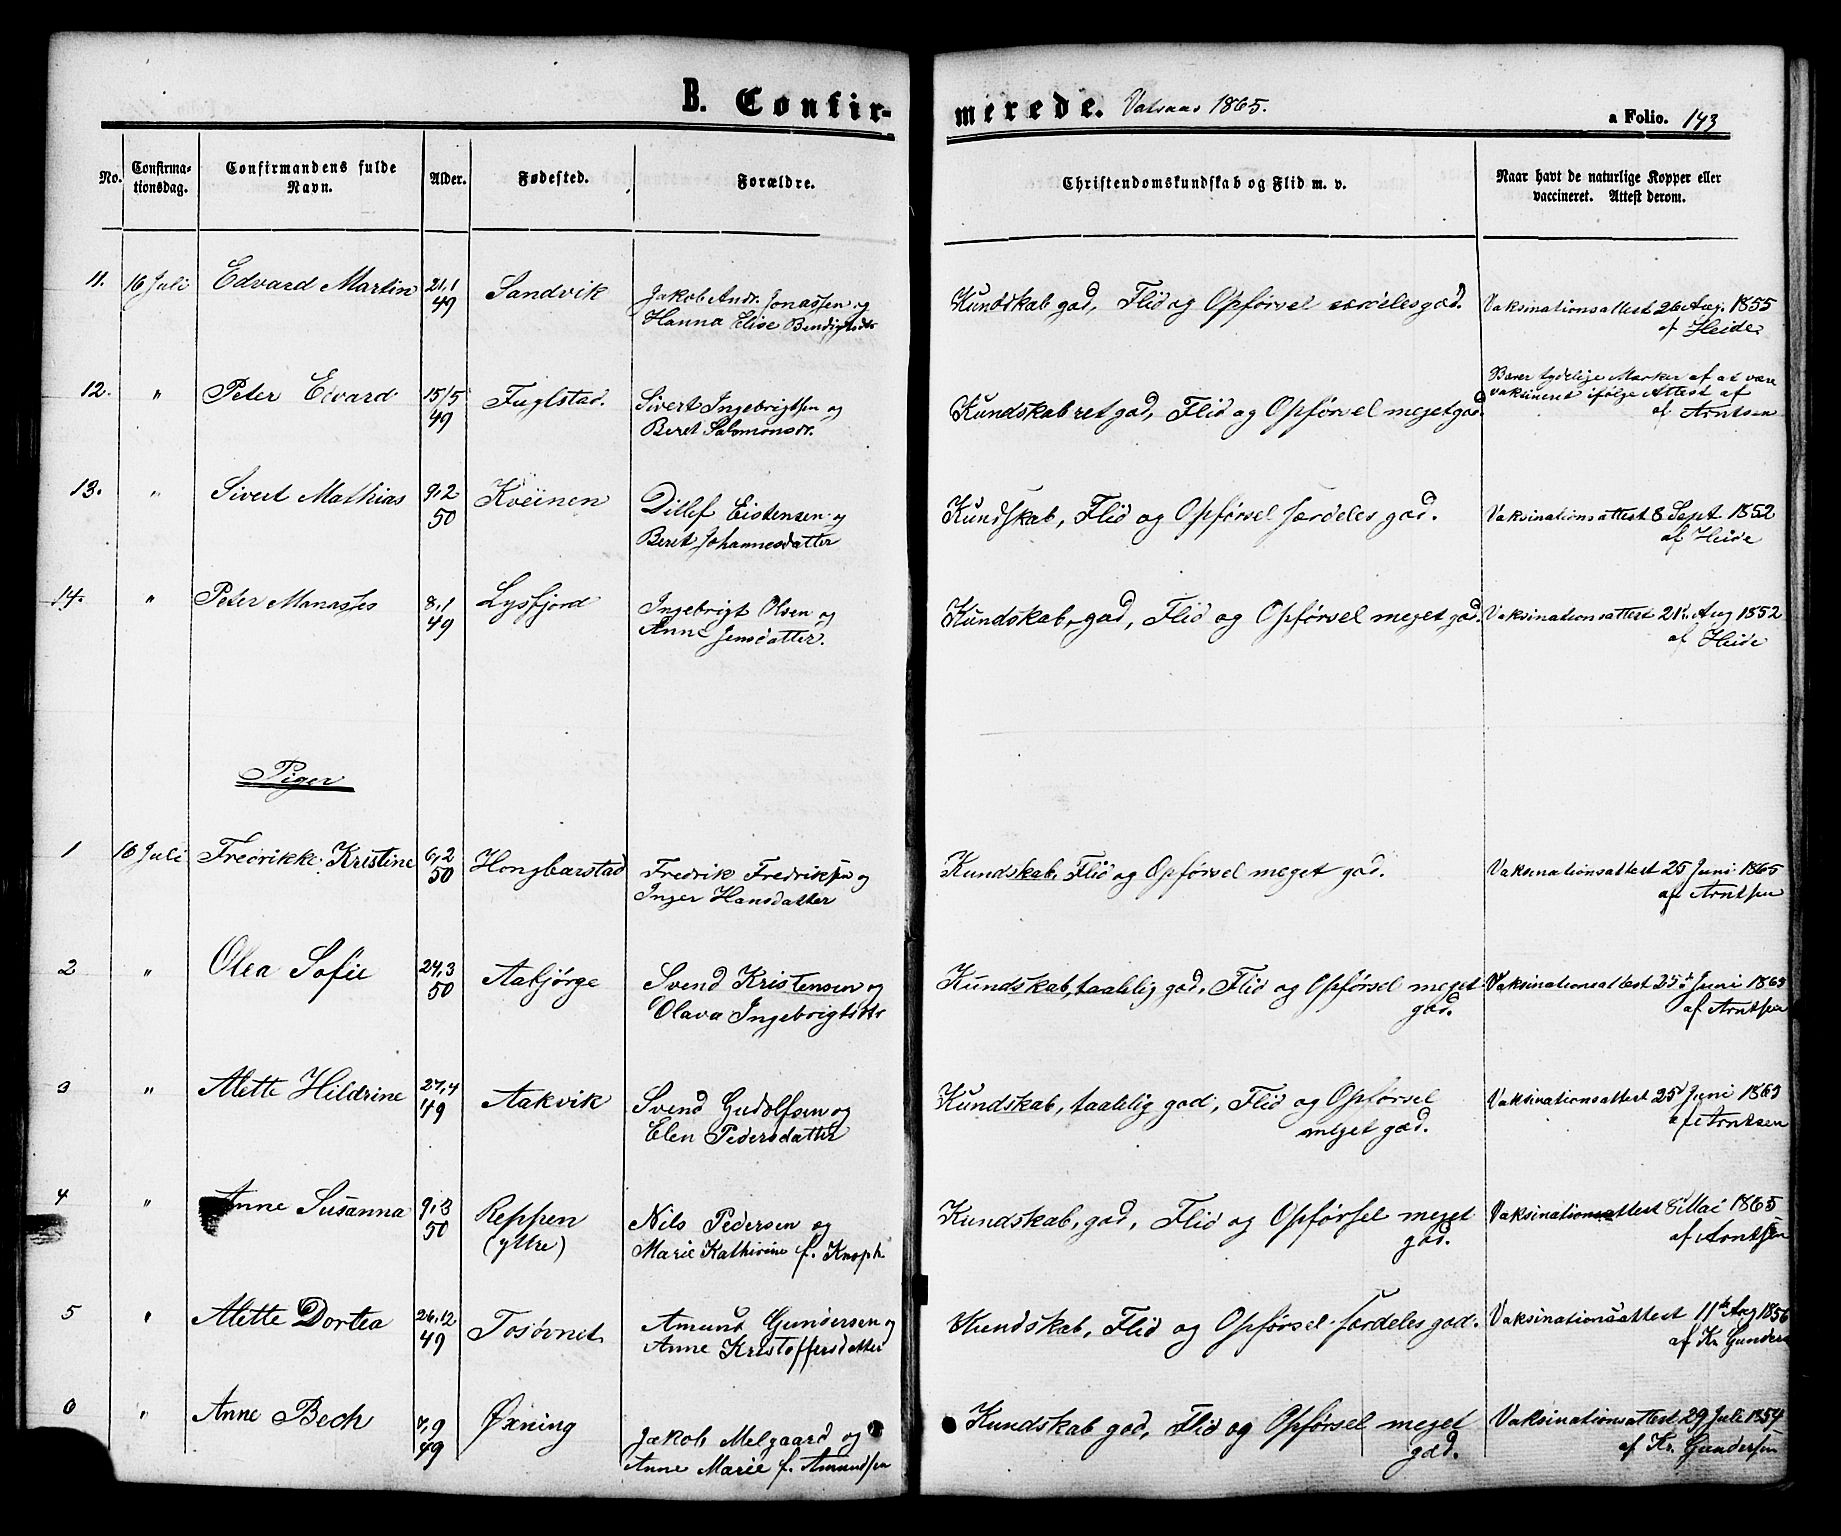 B. Confirmerede. Vatsaas 1865. a Folio. 143
No. Confirmationsdag. Confirmandens fulde Navn. Alder. Fødested. Forældre. Christendomskundskab og Flid m. v. Naar havt de naturlige Kopper eller vaccineret. Attest derom.
11. 16 Juli Edvard Martin 21,1 49 Sandvik Jakob Andr. Jonassen og Kundskab god, Flid og Opførsel særdeles god. Vaksinationsattest 26 Aug. 1855
Hanna Elise Bendigtsdtr af Heide
12. " Peter Edvard 15/5 49 Fuglstad. Sivert Ingebrigtsen og Kundskab ret god, Flid og Opførsel meget god. Bærer tydelige Mærker af at være
Beret Salomonsdr. vaksineret ifølge Attest af
af Arntsen
13. " Sivert Mathias 9,2 50 Kveinen Ditlef Eistensen og Kundskab, Flid og Opførsel særdeles god. Vaksinationsattest 8 Sept 1852
Beret Johannesdatter af Heide
14. " Peter Manasses 8,1 49 Lysfjord Ingebrigt Olsen og Kundskab, god, Flid og Opførsel meget god. Vaksinationsattest 21 Aug 1852
Anne Jensdatter. af Heide
Piger
1 16 Juli Fredrikke Kristine 6,2 50 Hongbarstad Fredrik Fredriksen og Kundskab, Flid og Opførsel meget god. Vaksinationsattest 25 Juni 1865
Inger Hansdatter af Arntsen
2 " Olea Sofie 24,3 50 Aabjørge Svend Kristensen og Kundskab, taalelig god, Flid og Opførsel meget Vaksinationsattest 25 Juni 1865
Olava Ingebrigtsdtr god. af Arntsen
3 " Alette Hildrine 27,4 49 Aakvik Svend Gudolfsen og Kundskab, taalelig god, Flid og Opførsel Vaksinationsattest 25 Juni 1865
Elen Pedersdatter meget god. af Arntsen
4 " Anne Susanna 9,3 50 Reppen Nils Pedersen og Kundskab, god, Flid og Opførsel meget Vaksinationsattest 8 Mai 1865
(yttre) Marie Kathrine f. Knoph god. af Arntsen
5 " Alette Dortea 26,12 49 Tosørnet Amund Gundersen og Kundskab, Flid og Opførsel særdeles god. Vaksinationsattest 11te Aug 1856
Anne Kristoffersdatter af Kr. Gunders
6 " Anne Bech 7,9 49 Øxning Jakob Melgaard og Kundskab god, Flid og Opførsel meget Vaksinationsattest 29 Juli 1854
Anne Marie f. Amundsen god. af Kr. Gundersen